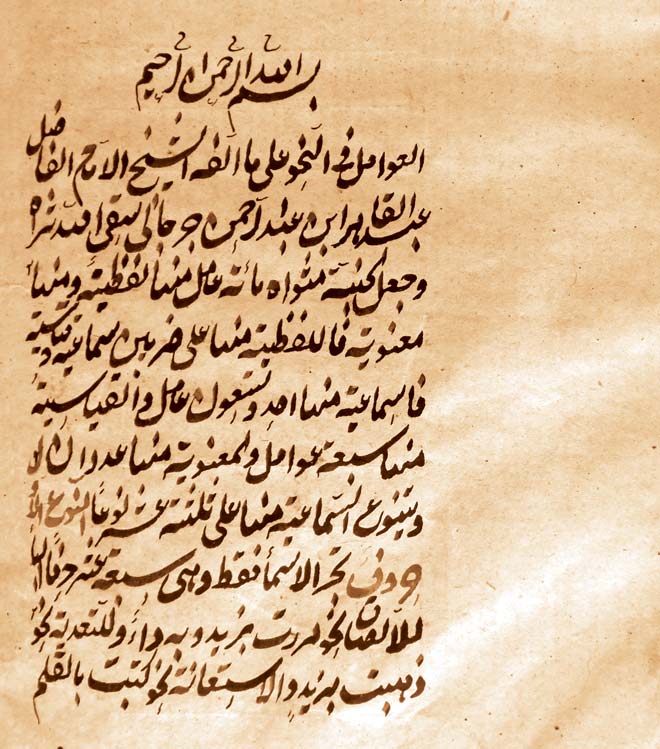 بسم الله الرحمن الرحيم
العوامل في النحو على ما الفه الشيخ الامام الفاضل
عبد القاهر ابن عبد الرحمن جرجاني سقى الله ثراه
وجعل الجنة مثواه مأئة عامل منها لفظية ومنها
معنوية فاللفظية منها على ضربين سماعية وقياسية
فاسماعية منها احد وتسعون عامل والقياسية
منها سبعة عوامل والمعنوية منها عددان
ويتنوع السماعية منها على ثلثة عشر نوعا النوع الاول
حروف تجر الاسمأ فقط وهى سبعة عشر حرفا البا
للالصاق نحو مررت بزيد وبه داء وللتعدية نحو
ذهبت بزيد والاستعانة نحو كتبت بالقلم